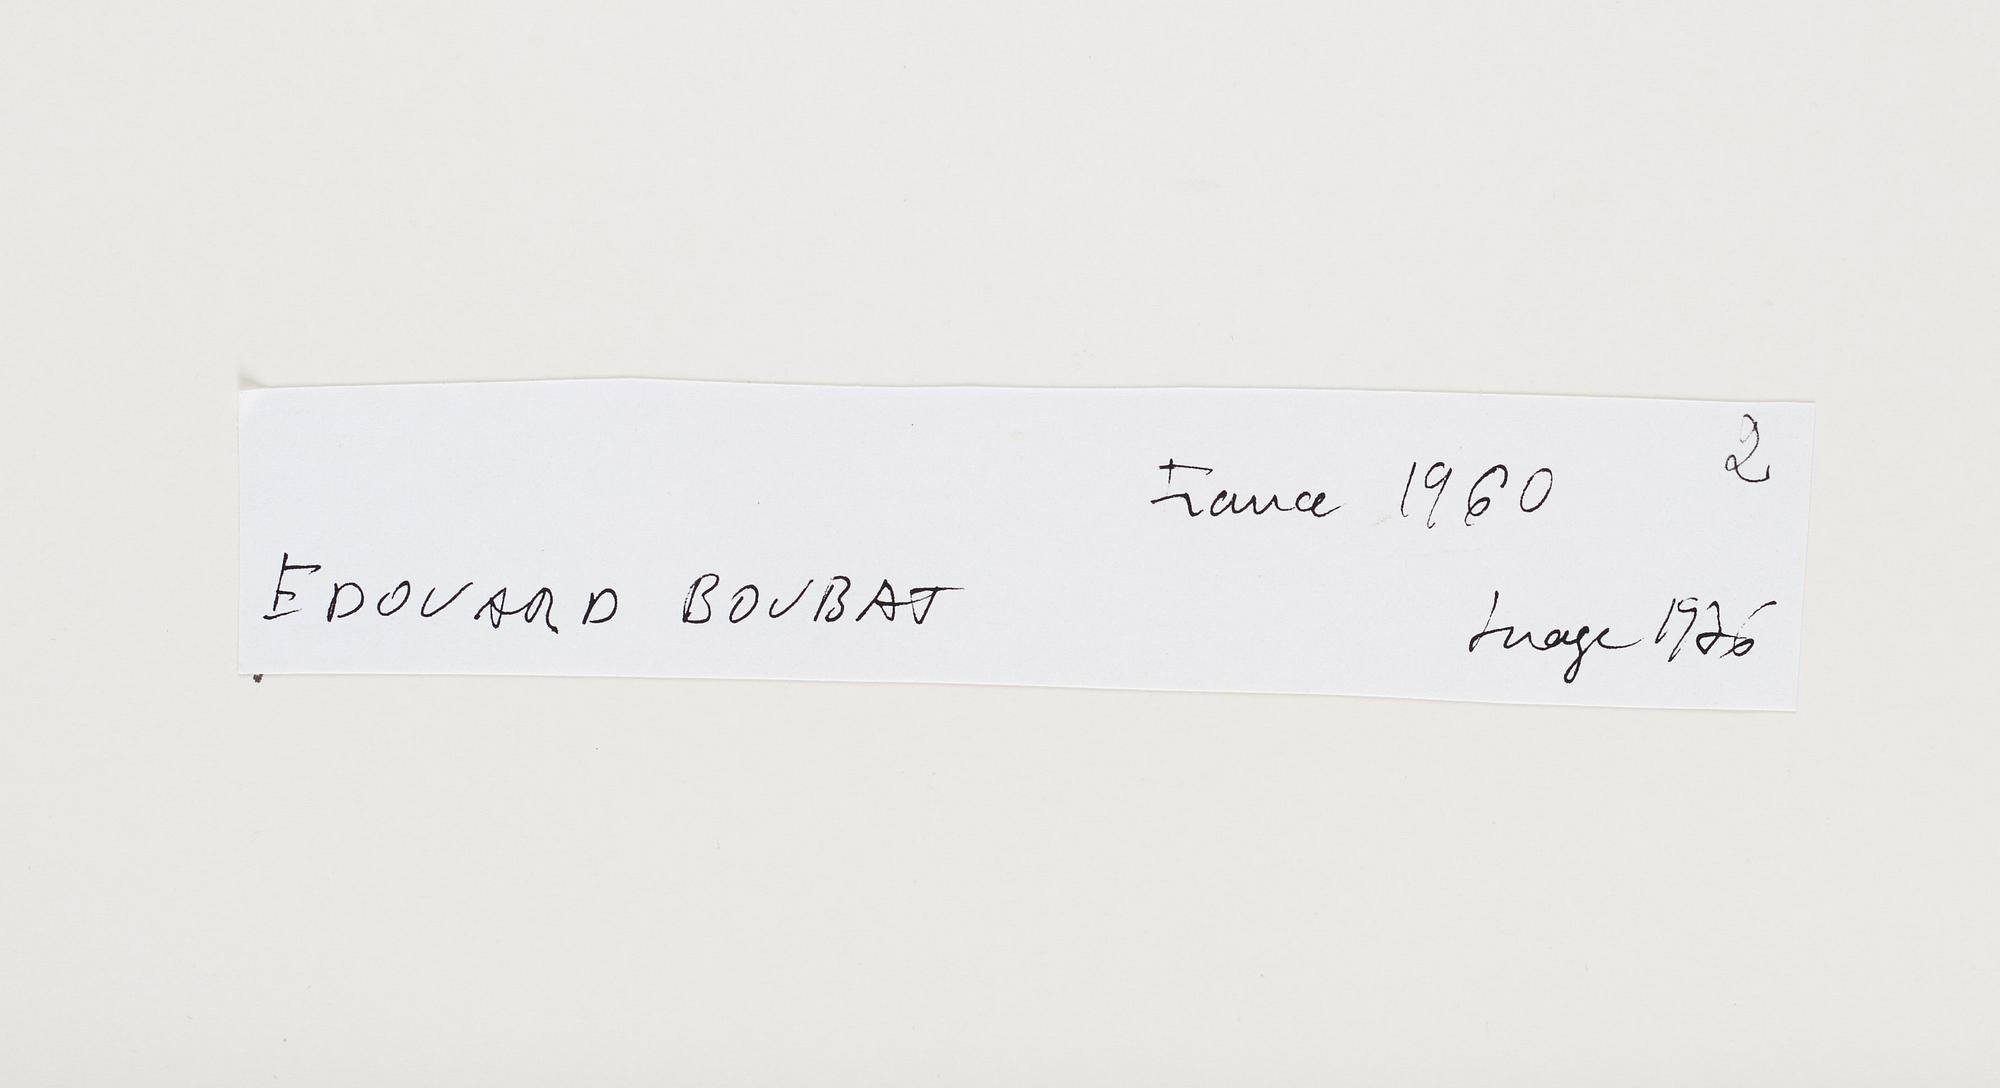 2
France 1960
EDOUARD BOUBAT
tirage 1976